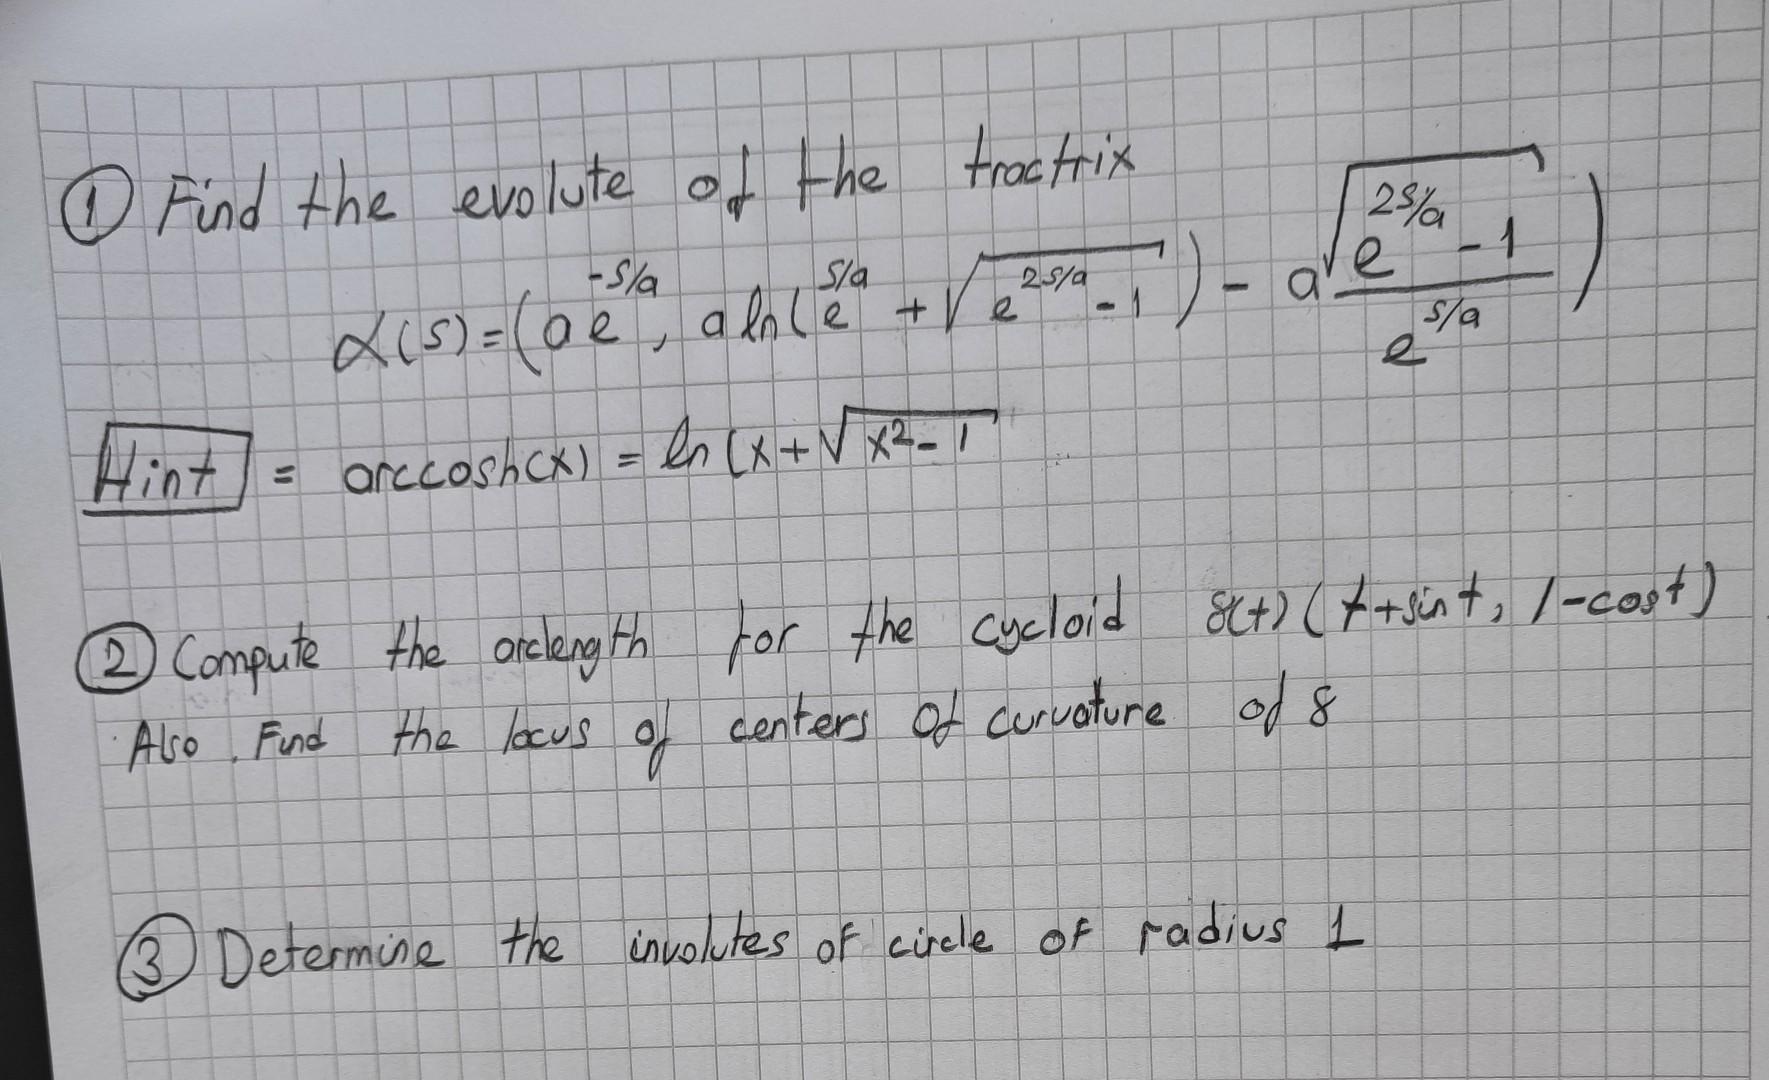 ① Find the evolute of the tractrix
α(s)=(ae^{-s/a}, a ln(e^{s/a} + √(e^{2s/a} - 1)) - a √(e^{2s/a} - 1) / e^{s/a})
Hint = arccosh(x) = ln(x+√(x²-1)
② Compute the arclength for the cycloid 8(t)(t+sint, 1-cost)
Also. Find the locus of centers of curvature of 8
③ Determine the involutes of circle of radius 1